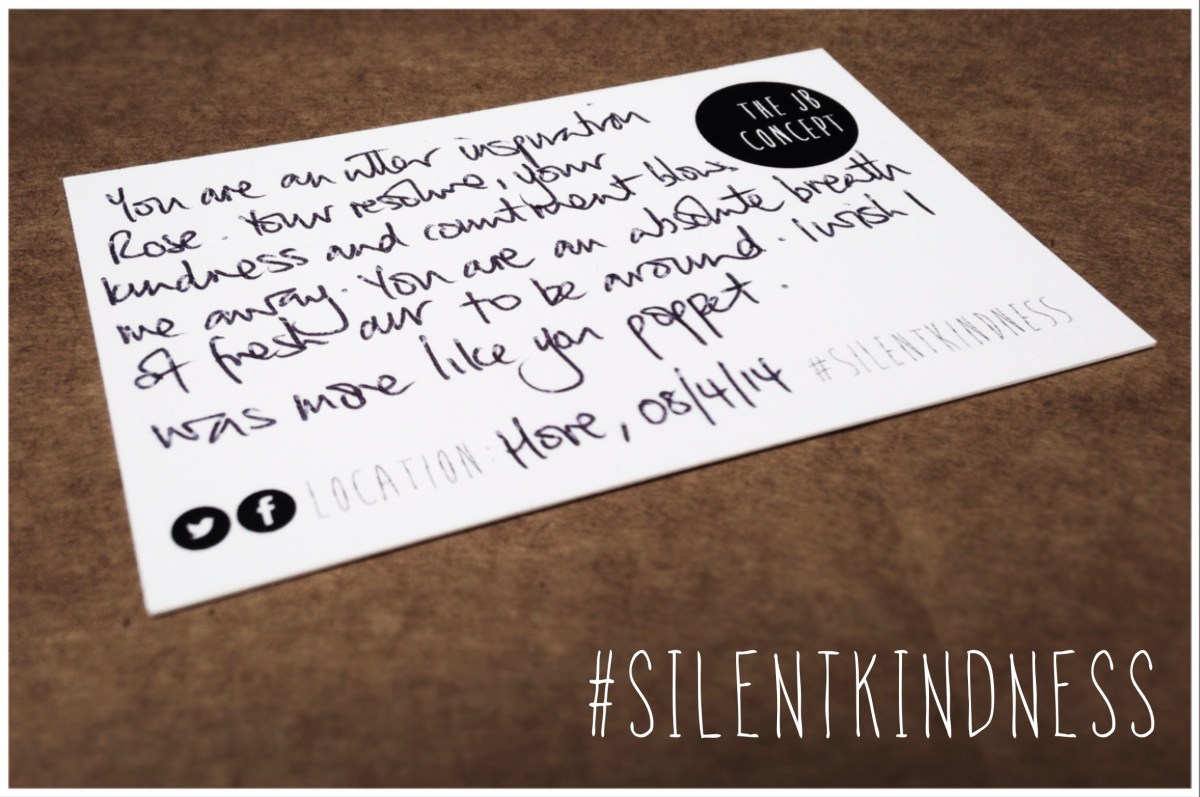 THE JB
CONCEPT
You are an utter inspiration
Rose. Your resolve, your
kindness and commitment blows
me away. You are an absolute breath
of fresh air to be around. I wish I
was more like you poppet.
LOCATION: Hove, 08/4/14 #SILENTKINDNESS
#SILENTKINDNESS